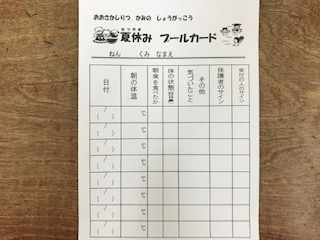 おおさかしりつ かみの しょうがっこう
なつやす
夏休み プールカード
ねん くみ なまえ
日付
朝の体温
朝食を食べたか
体の状態
その他
気づいたこと
保護者のサイン
受付の人のサイン
( / ) ℃
( / ) ℃
( / ) ℃
( / ) ℃
( / ) ℃
( / ) ℃
( / ) ℃